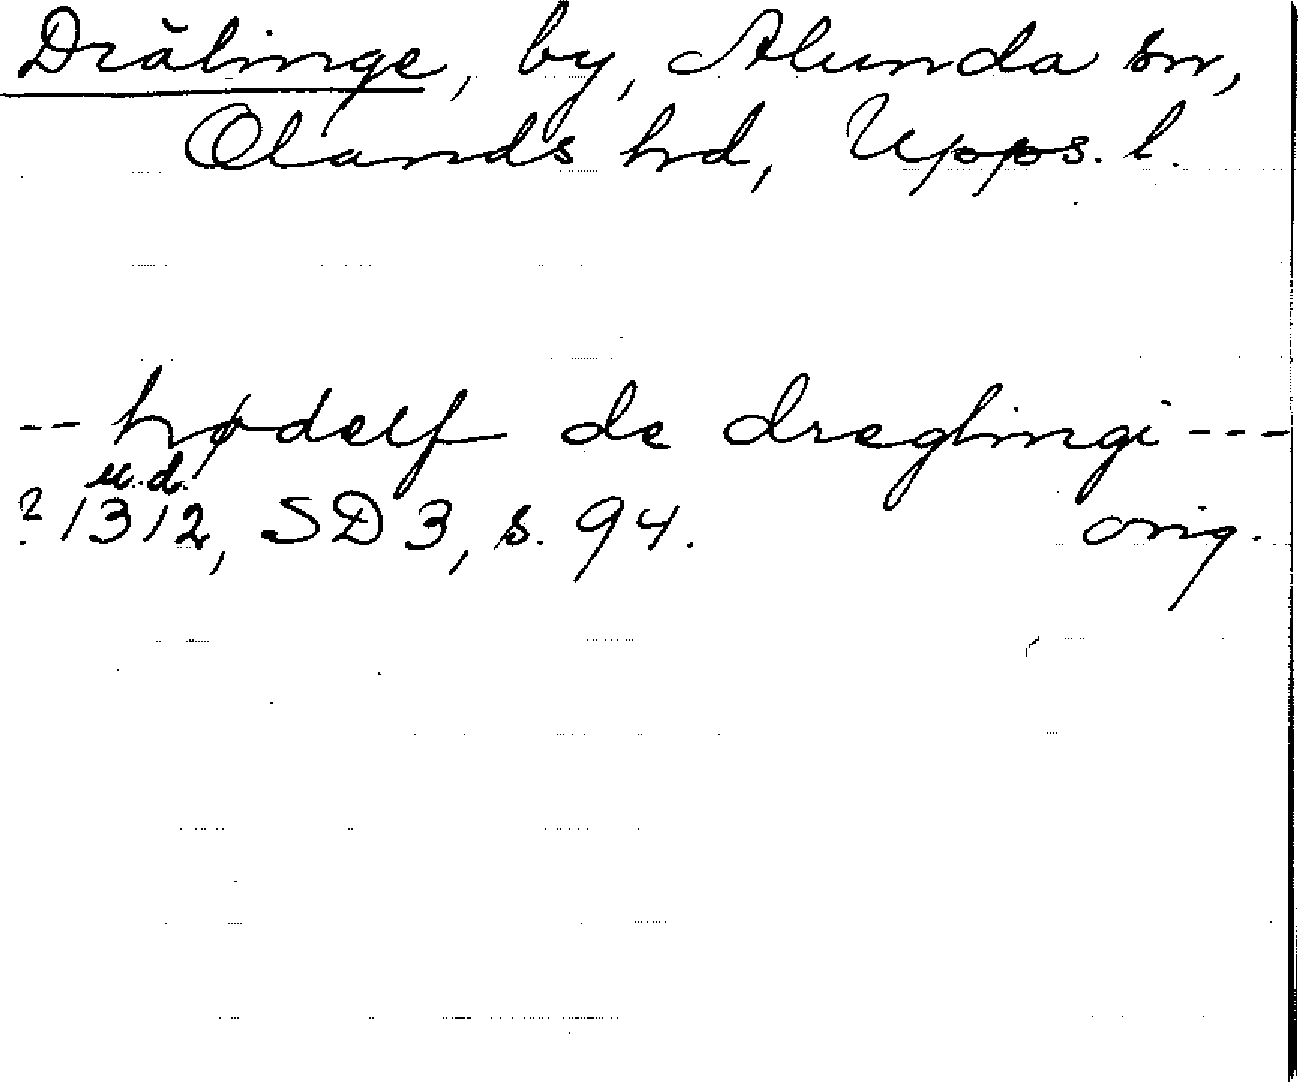 Drälinge, by, Alunda sn,
Olands hd, Upps. l.
-- hrødelf de dreglingi ---
u.d.
? 1312, SD 3, s. 94. orig.